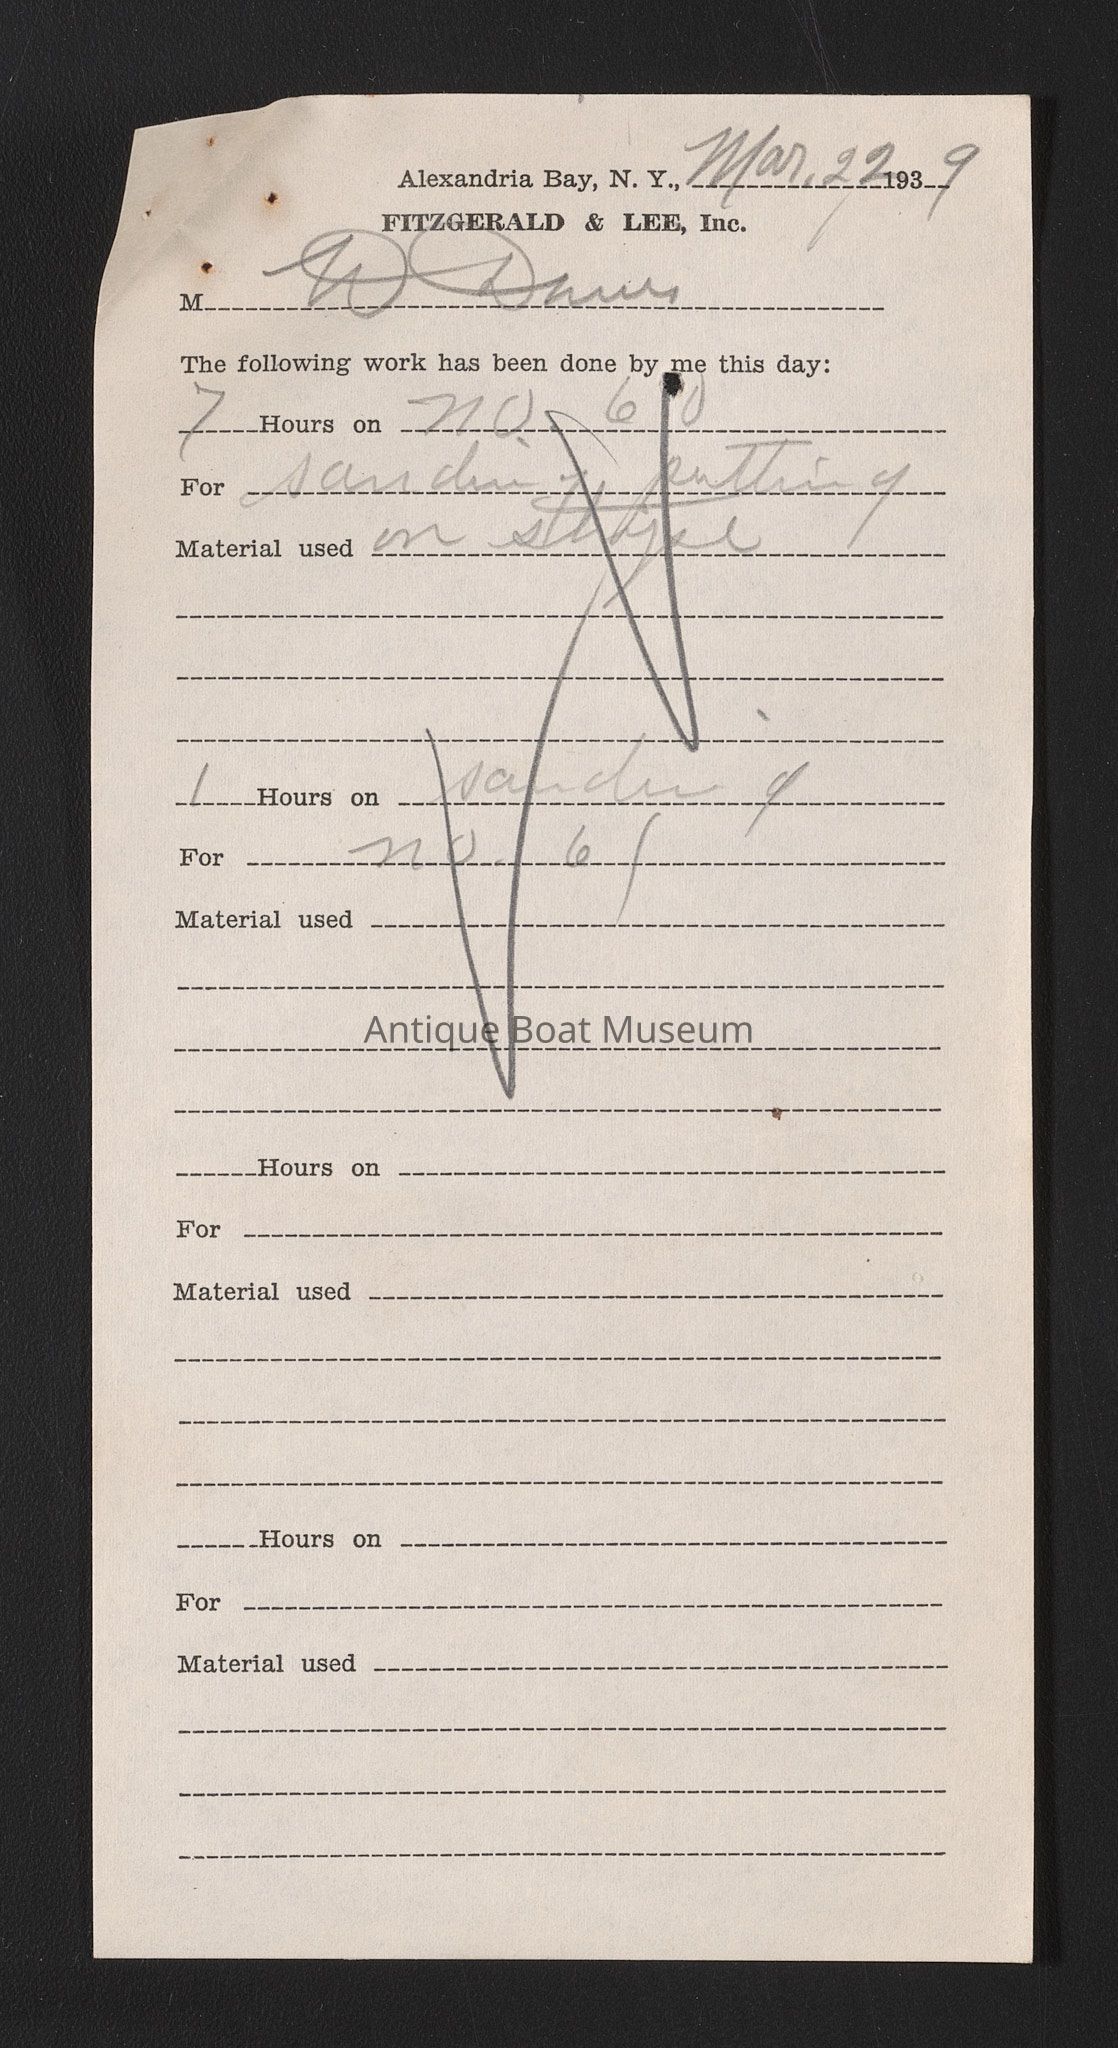 Alexandria Bay, N. Y., Mar. 22 1939
FITZGERALD & LEE, Inc.
M W
The following work has been done by me this day:
7 Hours on no. 60
For sanding putting
Material used on
1 Hours on sanding
For no. 61
Material used
Antique Boat Museum
Hours on
For
Material used
Hours on
For
Material used